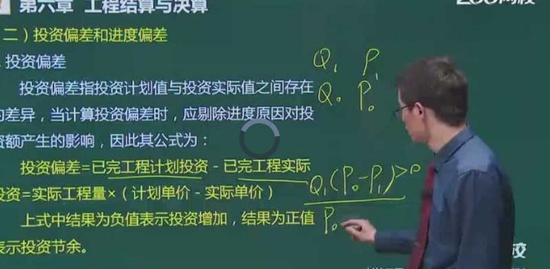 第六章 工程结算与决算
网校
二）投资偏差和进度偏差
投资偏差
投资偏差指投资计划值与投资实际值之间存在
的差异，当计算投资偏差时，应剔除进度原因对投
资额产生的影响，因此其公式为：
投资偏差=已完工程计划投资-已完工程实际
投资=实际工程量×（计划单价-实际单价）
上式中结果为负值表示投资增加，结果为正值
表示投资节余。
Q₁ P₁
Q₀ P₀
Q₁(P₀-P₁)>0
P₀
校